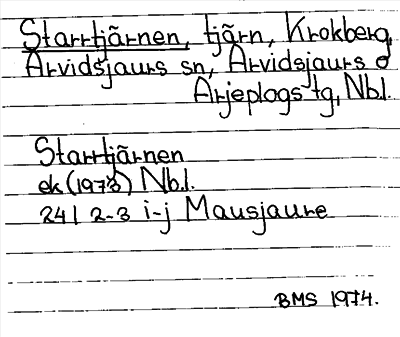 Starrtjärnen, tjärn, Krokberg,
Arvidsjaurs sn, Arvidsjaurs o
Arjeplogs tg, Nbl.
Starrtjärnen
ek (1973) Nbl.
24I 2-3 i-j Mausjaure
BMS 1974.